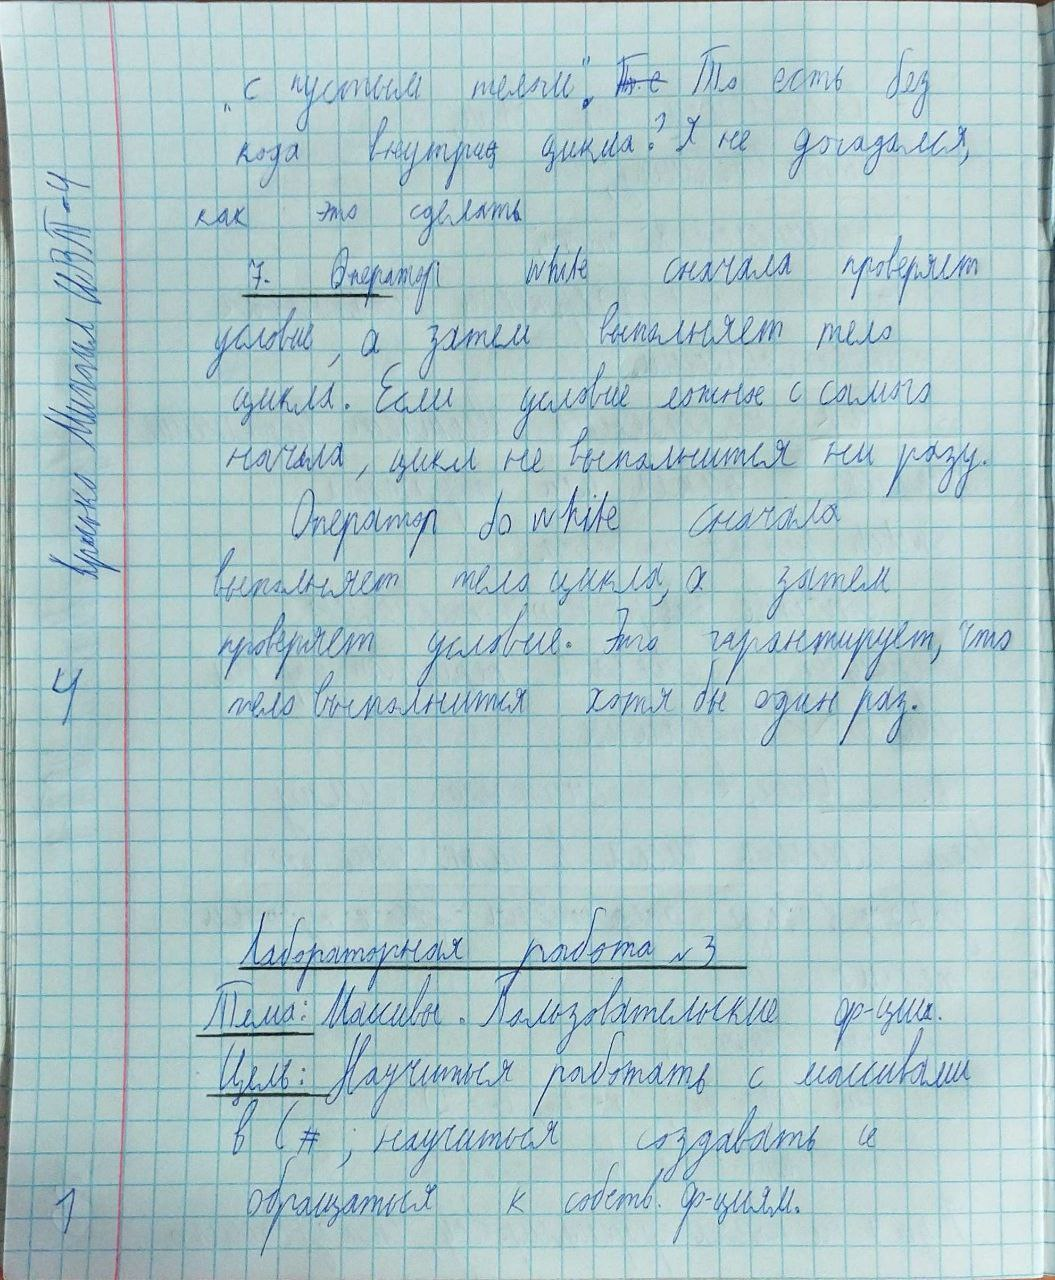 "с пустым телом". Т.е То есть без
кода внутри цикла? Я не догадался,
как это сделать
7. Оператор while сначала проверяет
условие, а затем выполняет тело
цикла. Если условие ложное с самого
начала, цикл не выполнится ни разу.
Оператор do while сначала
выполняет тело цикла, а затем
проверяет условие. Это гарантирует, что
тело выполнится хотя бы один раз.
Лабораторная работа №3
Тема: Массивы. Пользовательские ф-ции.
Цель: Научиться работать с массивами
в C#; научиться создавать и
обращаться к собств. ф-циям.
Михаил ИВТ-4
4
1